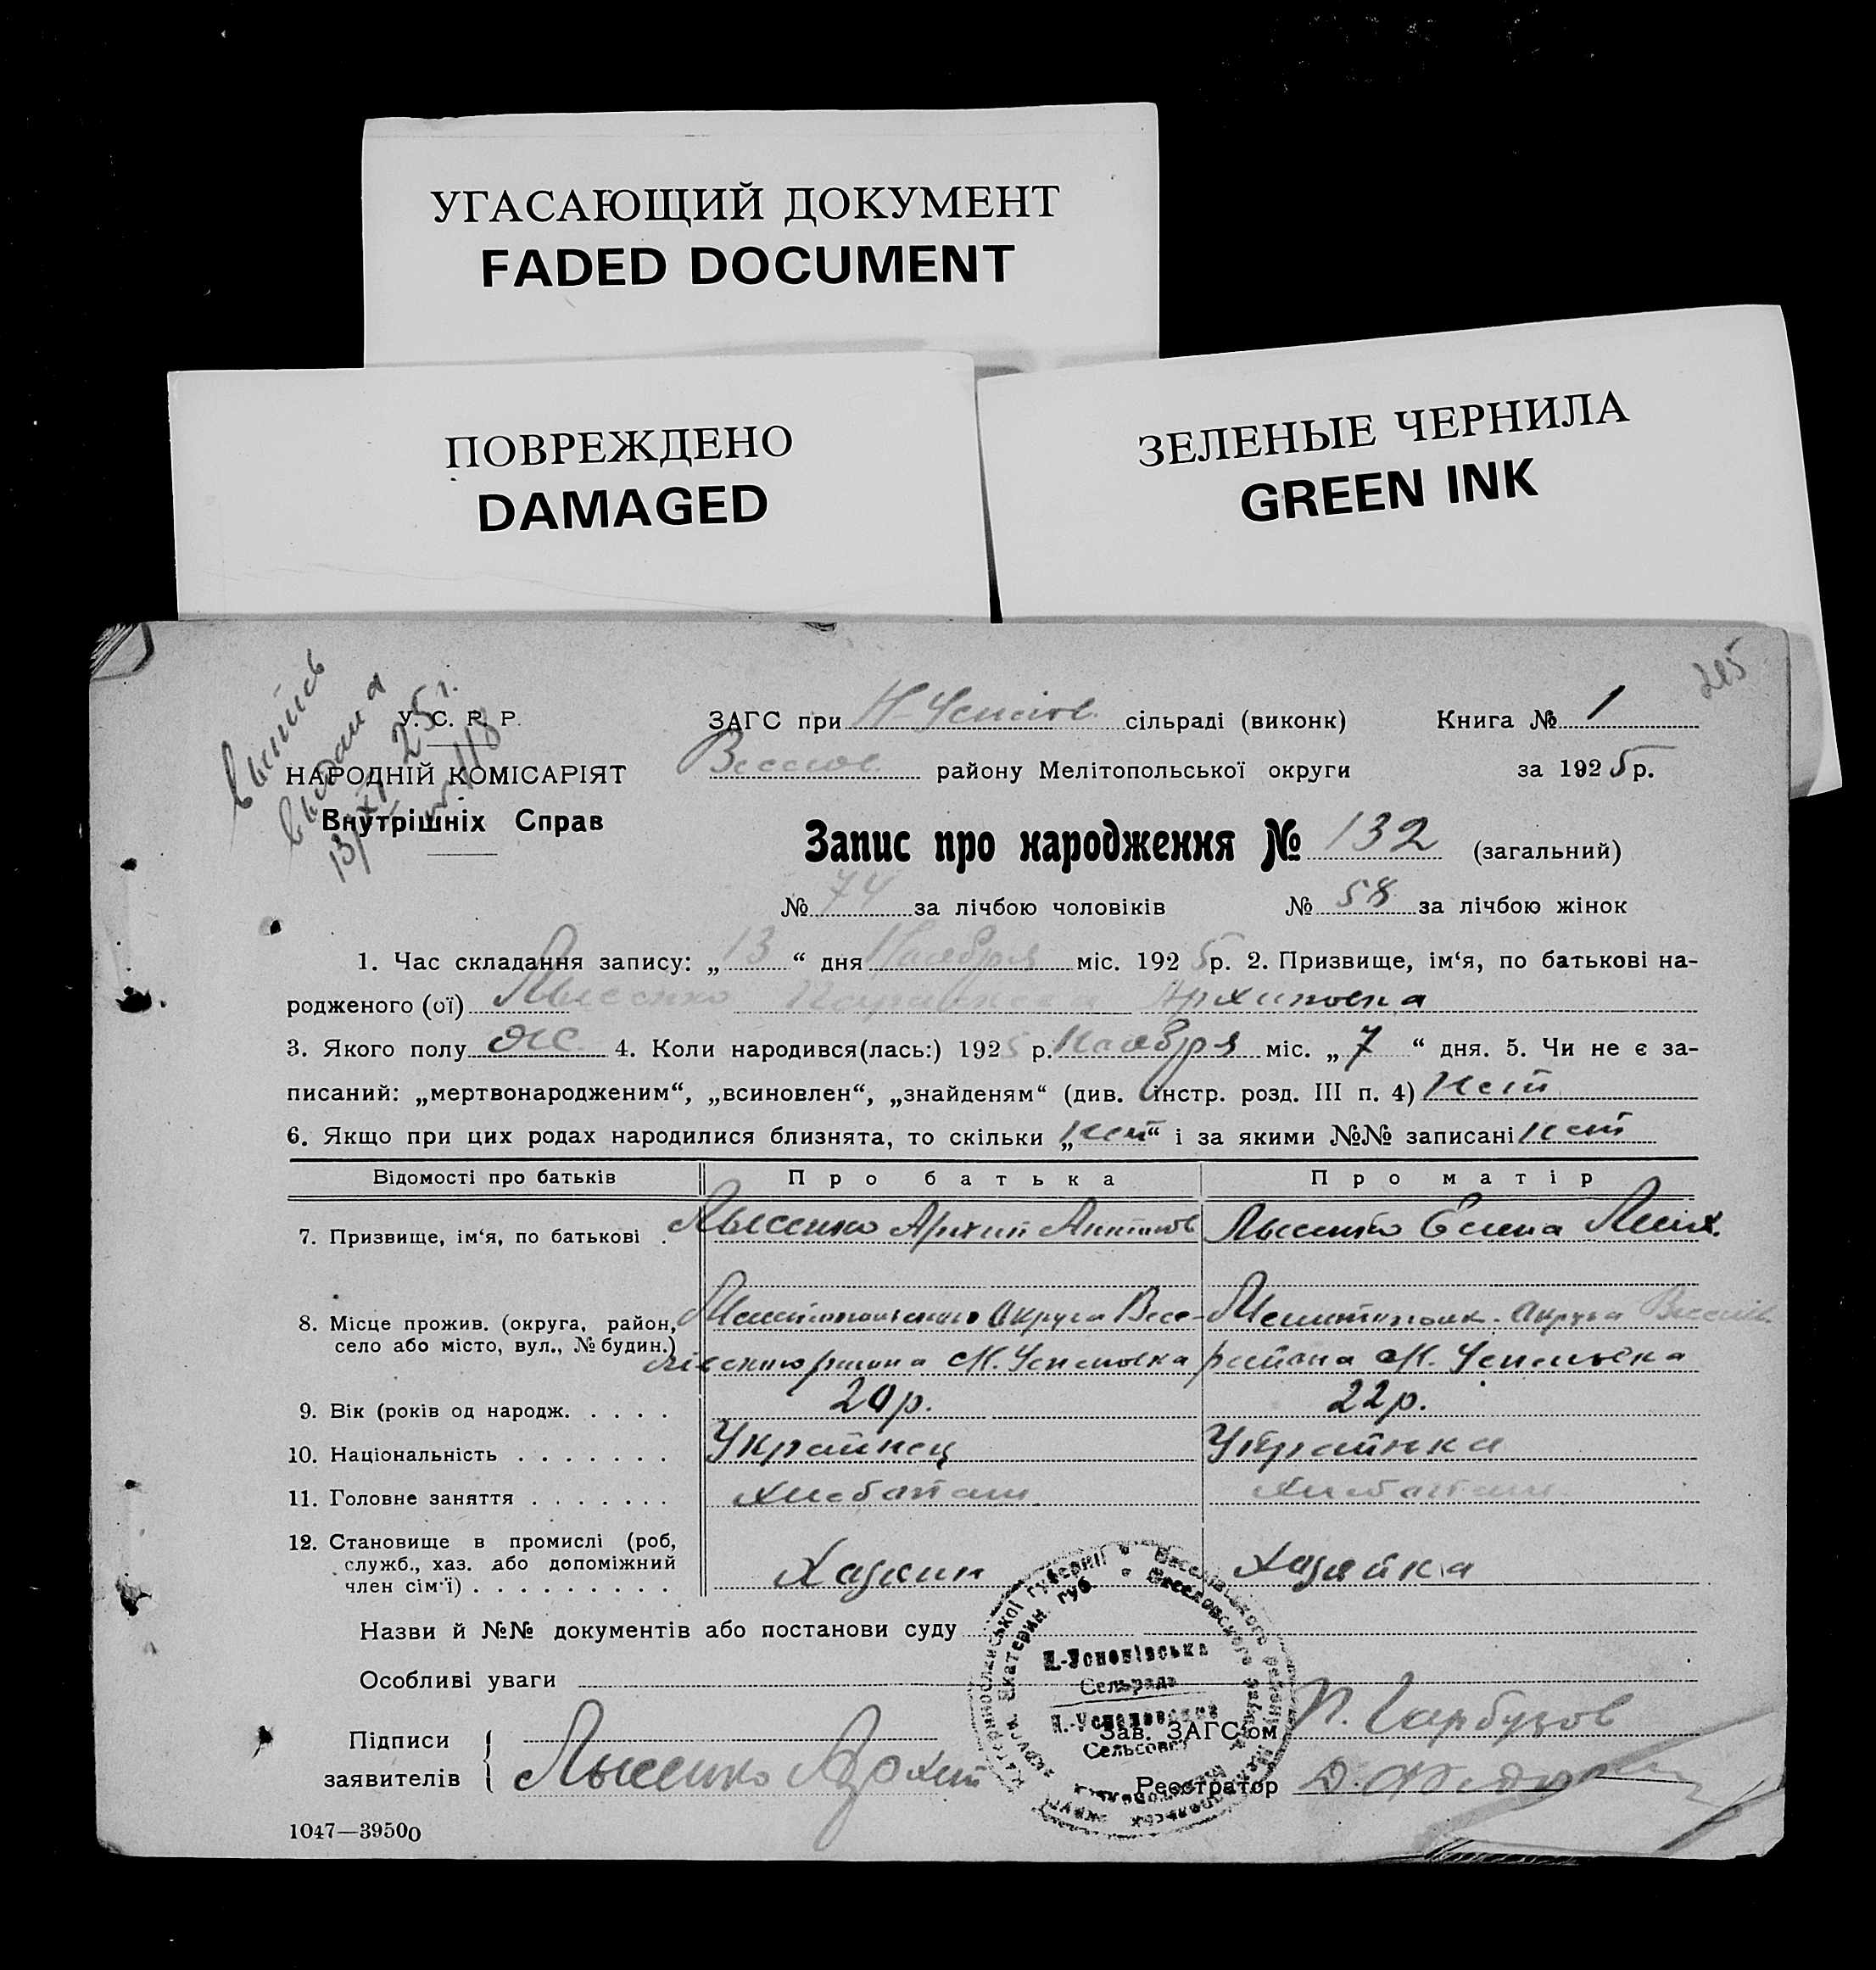 УГАСАЮЩИЙ ДОКУМЕНТ
FADED DOCUMENT
ПОВРЕЖДЕНО
DAMAGED
ЗЕЛЕНЫЕ ЧЕРНИЛА
GREEN INK
выпись
выдана
13/XI 25 г.
№ 118
У. С. Р. Р.
НАРОДНІЙ КОМІСАРІЯТ
Внутрішніх Справ
ЗАГС при Н-Успенов. сільраді (виконк) Книга № 1
Веселов. району Мелітопольської округи за 1925 р.
Запис про народження № 132 (загальний)
№ 74 за лічбою чоловіків № 58 за лічбою жінок
1. Час складання запису: „ 13 “ дня Ноября міс. 1925 р. 2. Призвище, ім‘я, по батькові на-
родженого (ої) Лысенко Архиповна
3. Якого полу ж 4. Коли народився(лась:) 1925 р. Ноября міс. „ 7 “ дня. 5. Чи не є за-
писаний: „мертвонародженим“, „всиновлен“, „знайденям“ (див. інстр. розд. III п. 4) Нет
6. Якщо при цих родах народилися близнята, то скільки „нет“ і за якими №№ записані нет
Відомості про батьків Про батька Про матір
7. Призвище, ім‘я, по батькові . Лысенко Архип Антонов Лысенко Елена Мих.
8. Місце прожив. (округа, район, Мелитопольского Округа Весе- Мелитопольк. Округа Веселов.
село або місто, вул., № будин.) ловского района Н. Успеновка района Н. Успеновка
9. Вік (років од народж. . . . . 20 р. 22 р.
10. Національність . . . . . . . Украинец Украинка
11. Головне заняття . . . . . . . Хлебопаш. Хлебопаш.
12. Становище в промислі (роб,
служб., хаз. або допоміжний Хазяин Хазяйка
член сім‘ї) . . . . . . . . .
Назви й №№ документів або постанови суду
Особливі уваги
Н.-Успенівська
Сельрада
Н.-Успеновский
Сельсовет
Підписи Зав. ЗАГС‘ом П. Гарбузов
заявителів Лысенко Архип Реєстратор
1047—39500